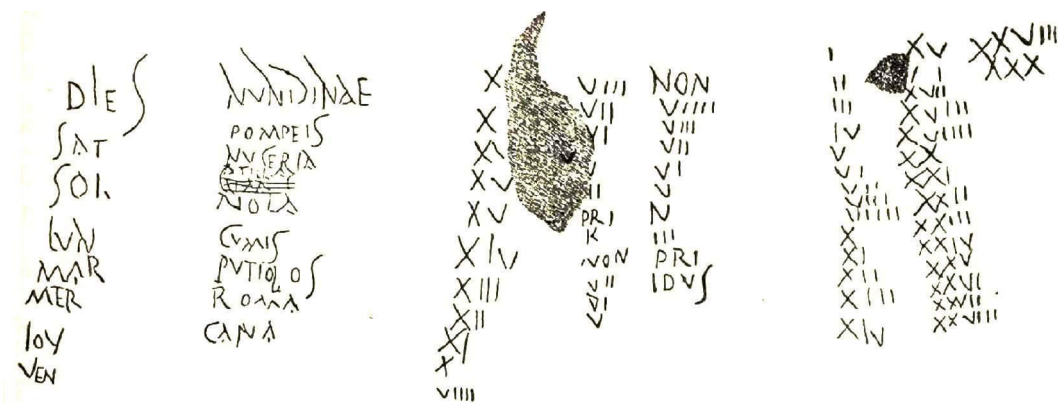 DIES
SAT
SOL
LVN
MAR
MER
IOV
VEN
NVNDINAE
POMPEIS
NVSERIA
NOLA
CVMIS
PVTIOLOS
ROMA
CAPVA
X
X
XV
XV
XV
XIV
XIII
XII
XI
X
VIIII
VIII
VII
VI
V
PRI
K
NON
VII
VI
V
NON
VIIII
VIII
VII
VI
V
IV
III
PRI
IDVS
I
II
III
IV
V
VI
VII
VIII
VIIII
X
XI
XII
XIII
XIV
XV
XVI
XVII
XVIII
XVIIII
XX
XXI
XXII
XXIII
XXIV
XXV
XXVI
XXVII
XXVIIII
XXVIII
XXX